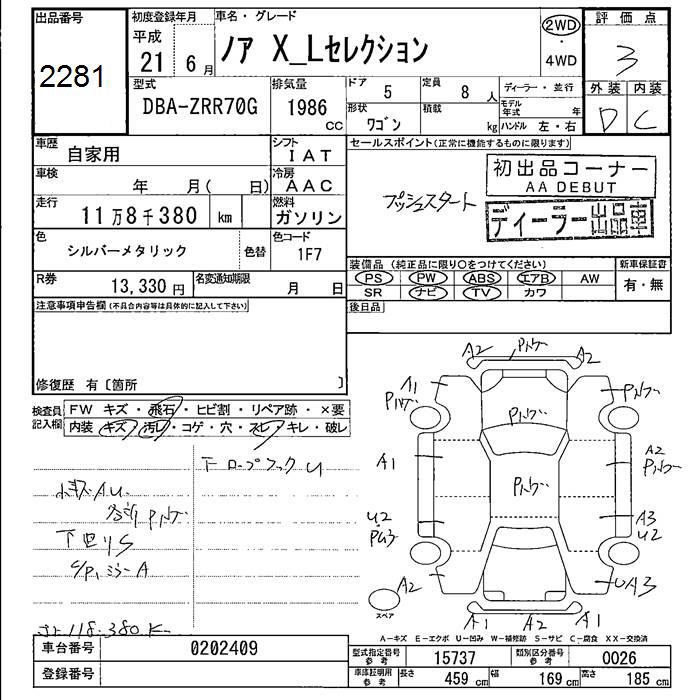 出品番号
2281
初度登録年月
平成
21 6月
車名・グレード
ノア X_Lセレクション
2WD
4WD
評価点
3
外装 内装
D C
型式
DBA-ZRR70G
排気量
1986
cc
ドア
5
定員
8 人
形状
ワゴン
積載
kg
ディーラー・並行
モデル年式 年
ハンドル 左・右
車歴
自家用
シフト
IAT
車検
年 月( 日)
冷房
AAC
走行
11万8千380 km
燃料
ガソリン
色
シルバーメタリック
色替
色コード
1F7
R券
13,330円
名変通知期限
月 日
セールスポイント(正常に機能するものに限ります)
プッシュスタート
初出品コーナー
AA DEBUT
ディーラー出品車
装備品(純正品に限り○をつけてください)
PS PW ABS エアB AW
SR ナビ TV カワ
新車保証書
有・無
後日品
注意事項申告欄(不具合内容等は具体的に記入して下さい)
修復歴 有〔箇所 〕
検査員記入欄
FW キズ・飛石・ヒビ割・リペア跡・×要
内装 キズ・汚レ・コゲ・穴・スレ・キレ・破レ
下ロープフックU
小キズAU
各部Pハゲ
下回りS
C/P,ミラーA
118.380K
A2 Pハゲ A2
A1
Pハゲ
Pハゲ
Pハゲ
A1
Pハゲ
A2
Pハゲ
U2
A3
U2
A2
UA3
スペア
A1 A2 A1
A-キズ E-エクボ U-凹み W-補修跡 S-サビ C-腐食 XX-交換済
車台番号
0202409
登録番号
型式指定番号
参考
15737
類別区分番号
参考
0026
車庫証明用
参考
長さ 459 cm 幅 169 cm 高さ 185 cm